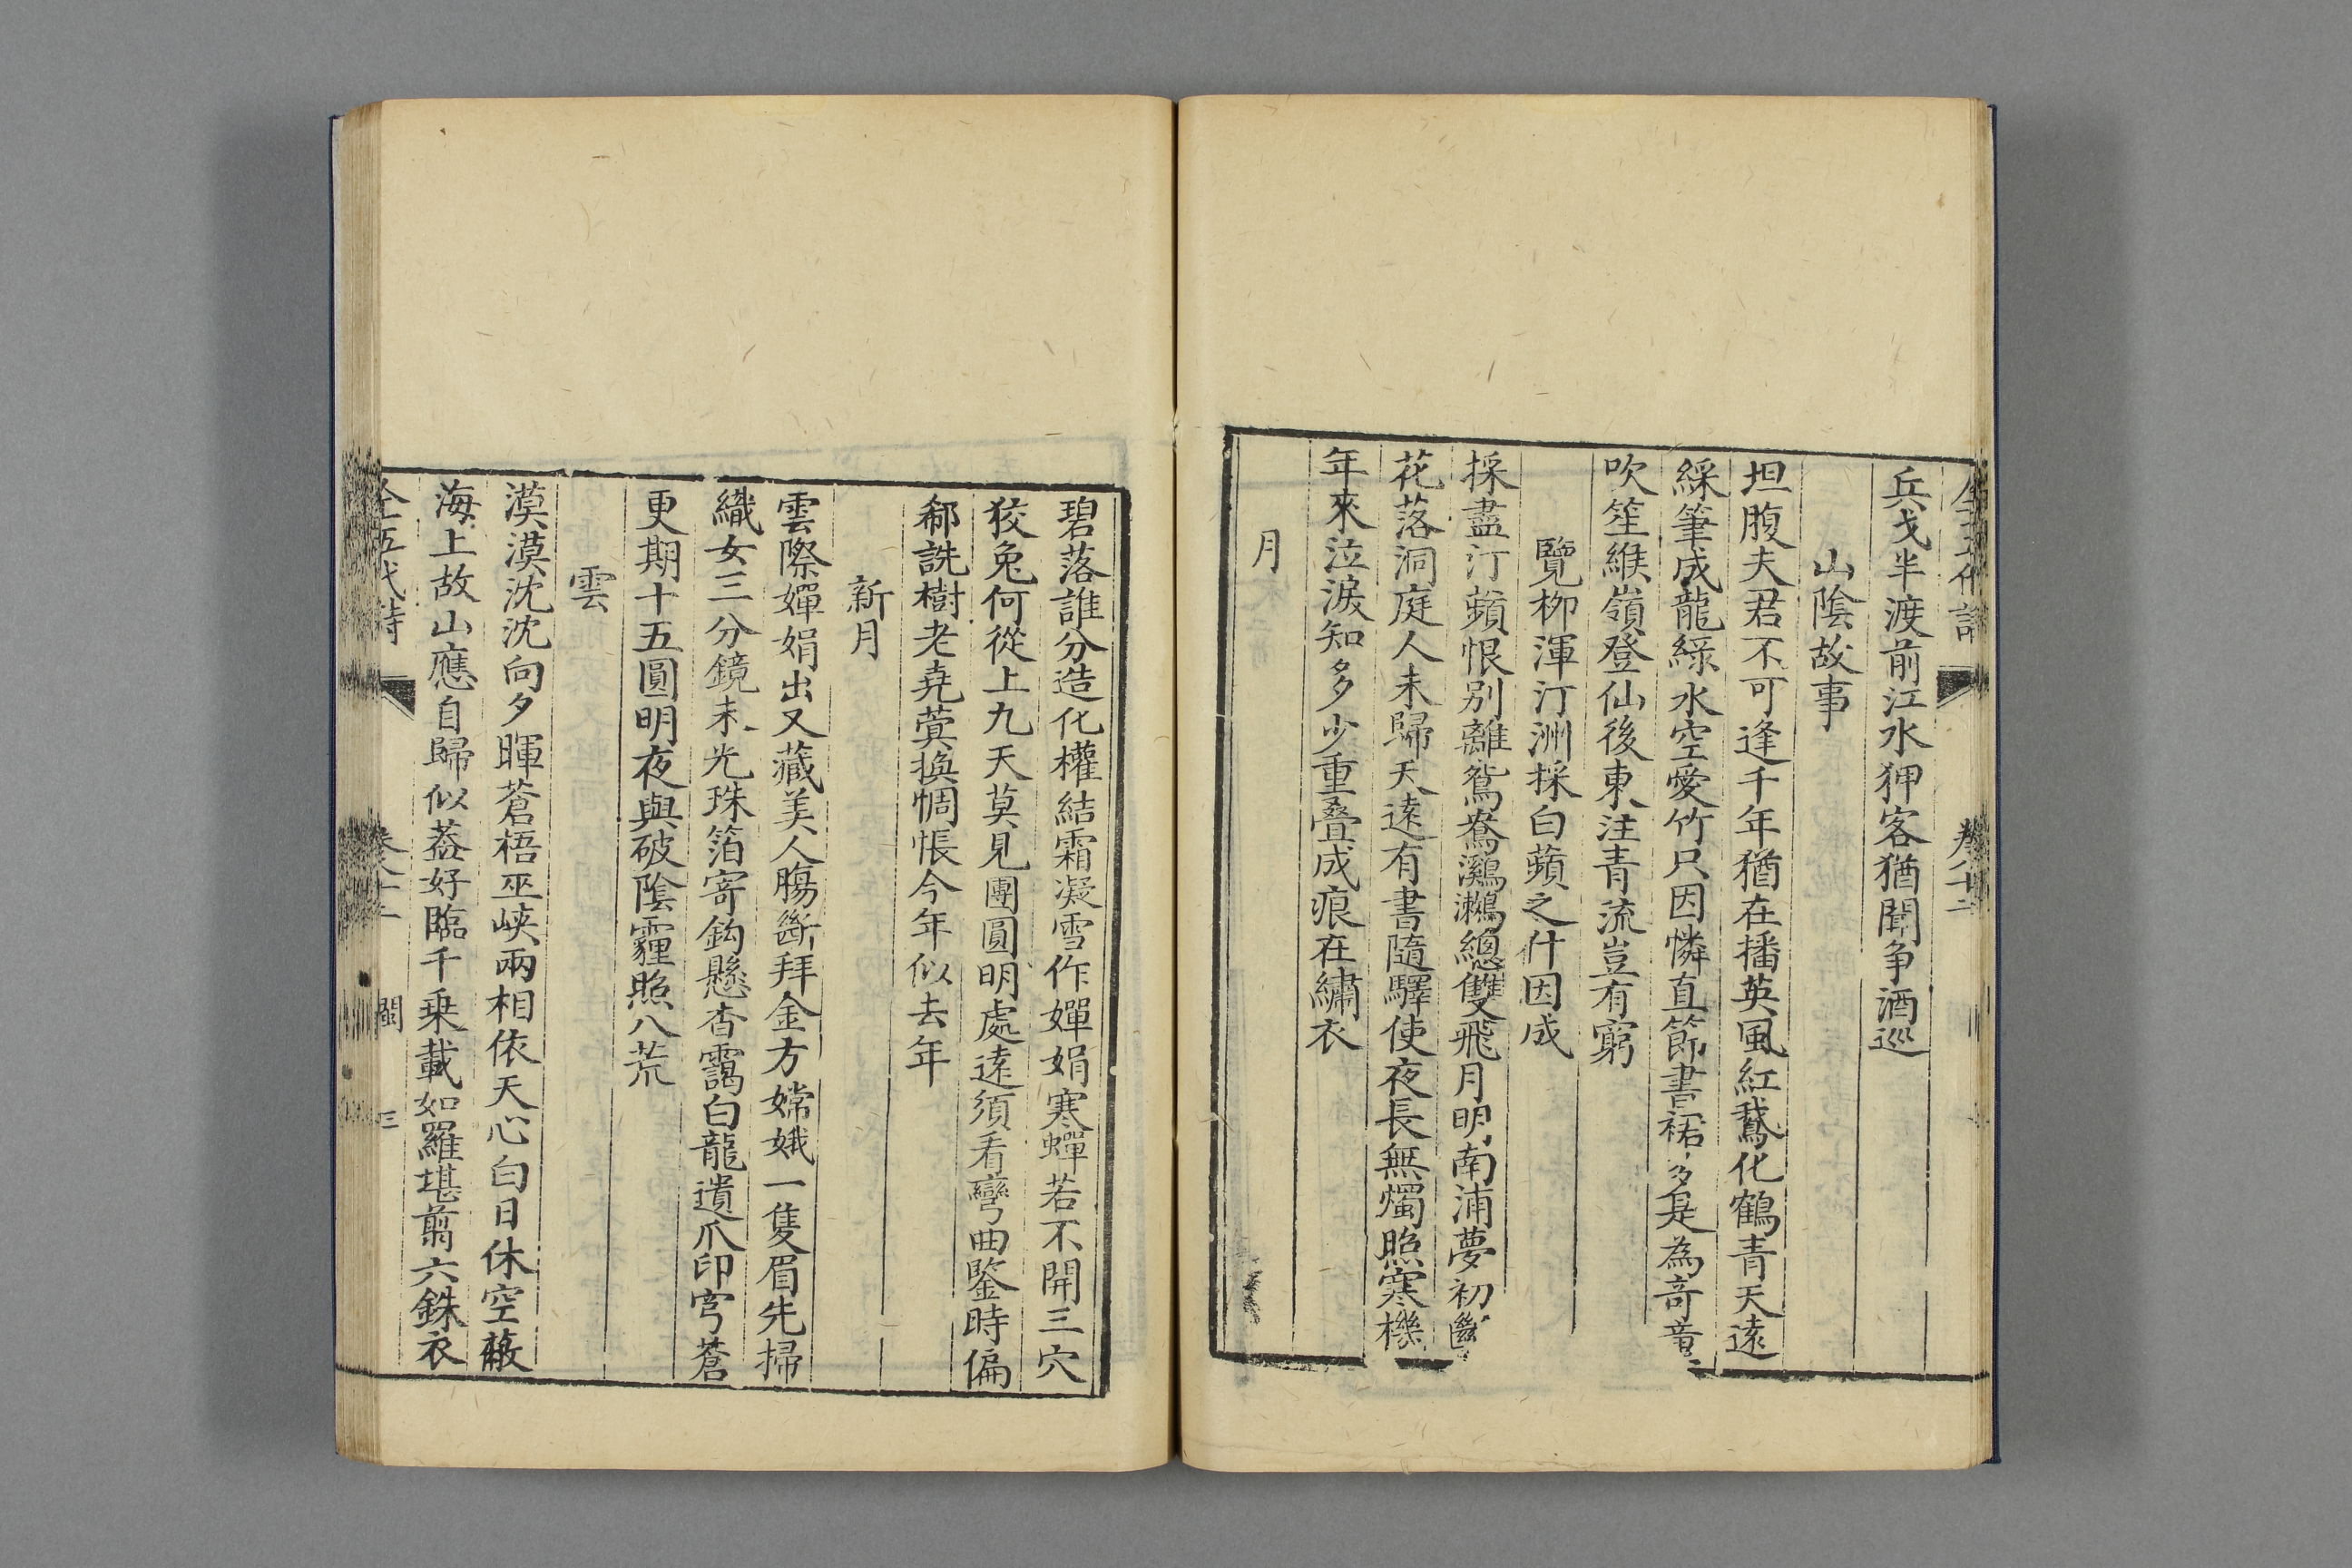 全五代詩 卷八十二
兵戈半渡前江水狎客猶聞争酒巡
山陰故事
坦腹夫君不可逢千年猶在播英風紅鵞化鶴青天遠
綵筆成龍綠水空愛竹只因憐直節書裙多是為竒童
吹笙緱嶺登仙後東注青流豈有窮
覽栁渾汀洲採白蘋之什因成
採盡汀蘋恨别離鴛鴦鸂鶒總雙飛月明南浦夢初斷
花落洞庭人未歸天遠有書隨驛使夜長無燭照寒機
年來泣淚知多少重疊成痕在繡衣
月
碧落誰分造化權結霜凝雪作嬋娟寒蟬若不開三穴
狡兔何從上九天莫見團圓明處遠須看彎曲鑒時偏
郗詵樹老堯蓂換惆悵今年似去年
新月
雲際嬋娟出又藏美人腸斷拜金方嫦娥一隻眉先掃
織女三分鏡未光珠箔寄鈎懸杳靄白龍遺爪印穹蒼
更期十五圓明夜與破陰霾照八荒
雲
漠漠沈沈向夕暉蒼梧巫峽兩相依天心白日休空蔽
海上故山應自歸似葢好臨千乗載如羅堪翦六銖衣
全五代詩 卷八十二 閩 三